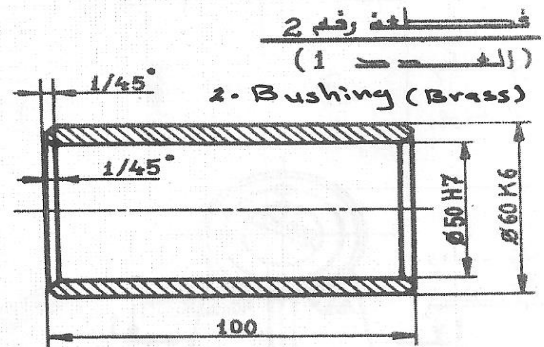 قطعة رقم 2
(العدد 1)
2. Bushing (Brass)
1/45°
1/45°
Ø50 H7
Ø60 K6
100